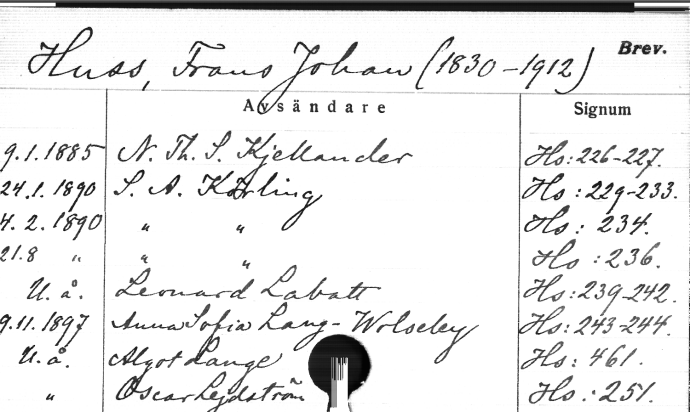 Huss, Frans Johan (1830-1912) Brev.
Avsändare Signum
9.1.1885 N. Th. S. Kjellander Hs: 226-227.
24.1.1890 S. A. Körling Hs: 229-233.
4.2.1890 " " Hs: 234.
21.8 " " " Hs: 236.
U. å. Leonard Labatt Hs: 239-242.
9.11.1897 Anna Sofia Lang-Wolseley Hs: 243-244.
U. å. Algot Lange Hs: 461.
" Oscar Lejdström Hs: 251.